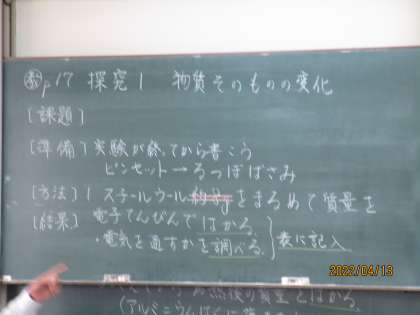 教p17 探究1 物質そのものの変化
[課題]
[準備] 実験が終ってから書こう
ピンセット→るつぼばさみ
[方法] 1 スチールウール約8gをまるめて質量を
電子てんびんではかる。
[結果]
・電気を通すかを調べる。
表に記入
2022/04/13
然後の質量をはかる。
(アルミニウムはくに